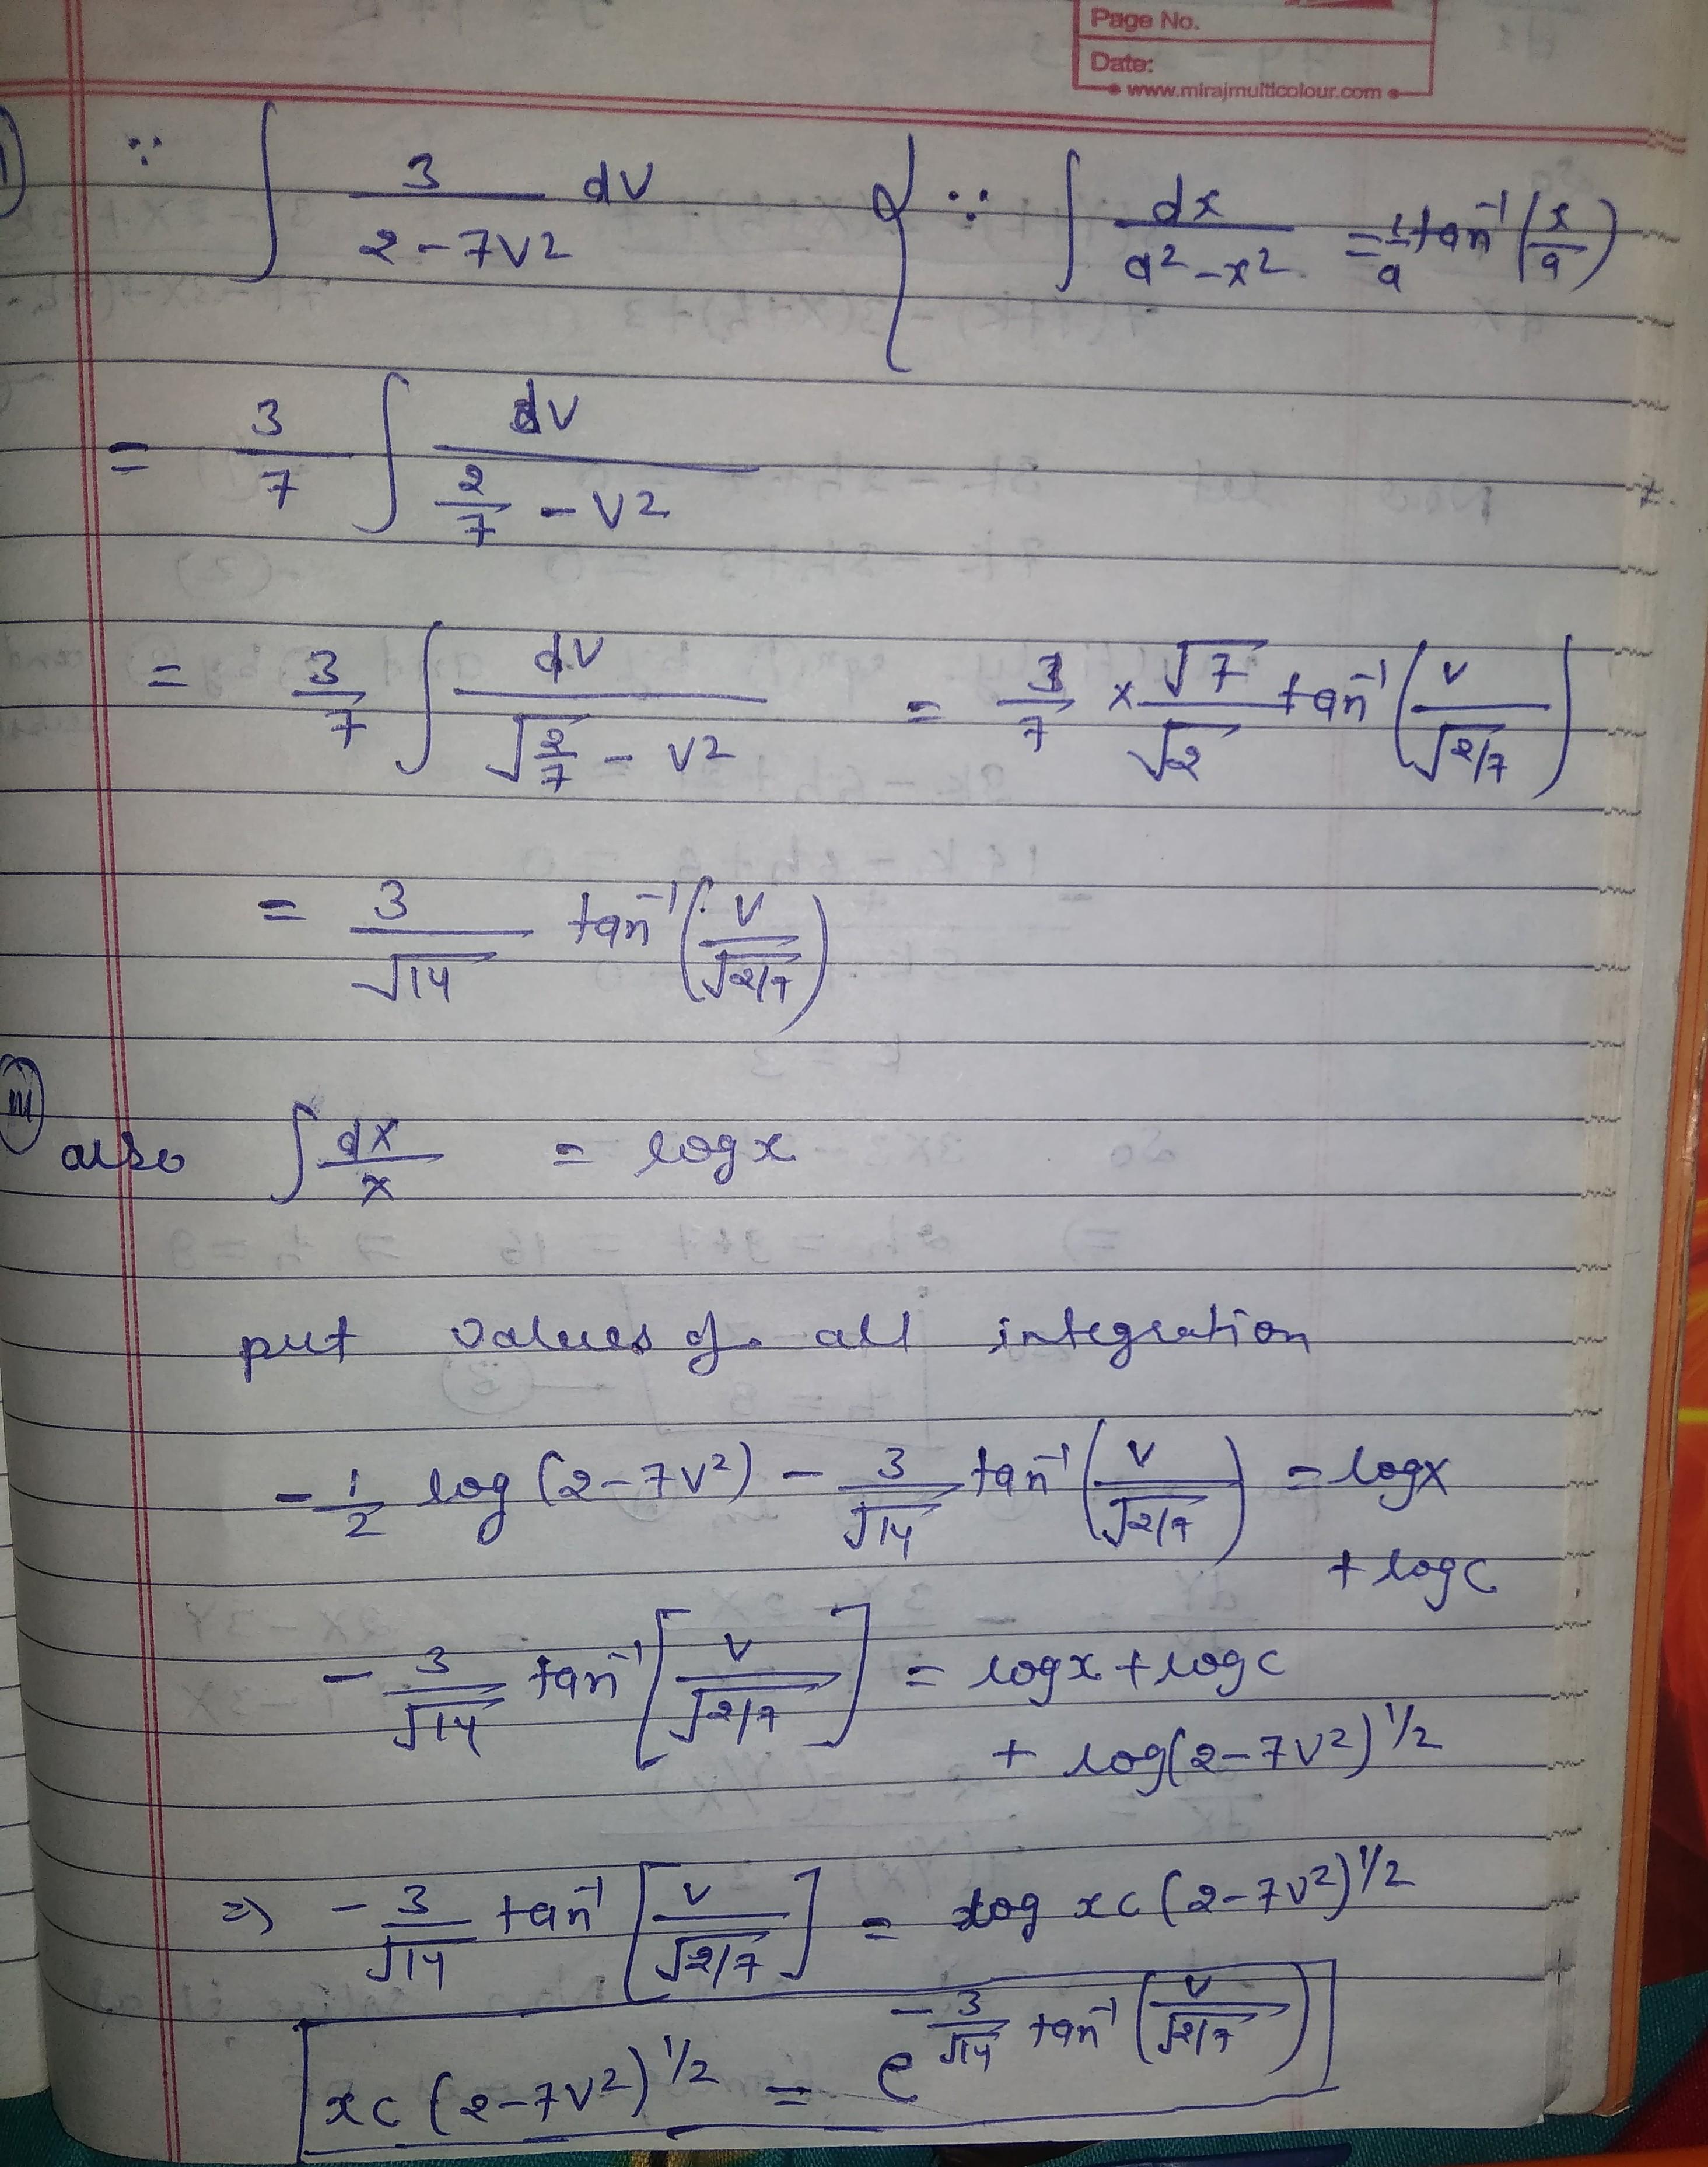 Page No.
Date:
www.mirajmulticolour.com
∵ ∫ 3/(2-7V2) dV { ∵ ∫ dx/(a2-x2) = 1/a tan-1 (x/a)
= 3/7 ∫ dV/(2/7 - V2)
= 3/7 ∫ dV/(√(2/7) - V2) = 3/7 × √7/√2 tan-1 (V/√(2/7))
= 3/√14 tan-1 (V/√(2/7))
also ∫ dx/x = log x
put values of all integration
- 1/2 log (2-7V2) - 3/√14 tan-1 (V/√(2/7)) = log x
+ log c
- 3/√14 tan-1 [V/√(2/7)] = log x + log c
+ log(2-7V2)1/2
⇒ - 3/√14 tan-1 [V/√(2/7)] = log xc (2-7V2)1/2
xc (2-7V2)1/2 = e - 3/√14 tan-1 (V/√(2/7))